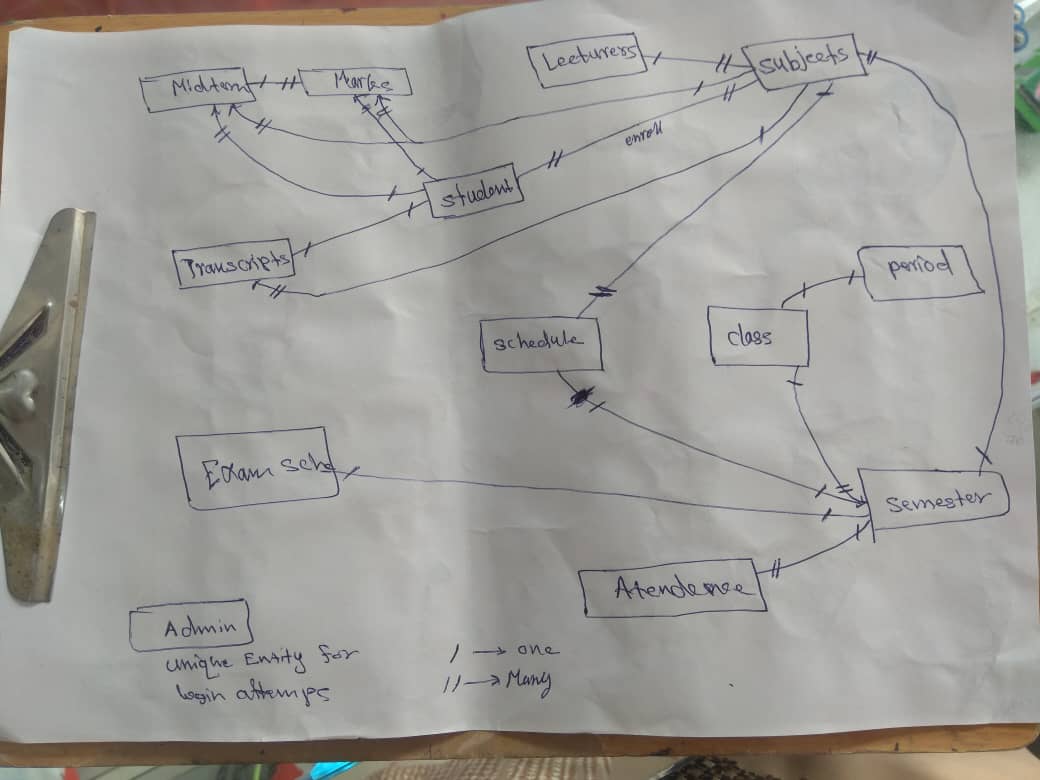 Lecturers
subjects
Midterm
Marks
enroll
student
Transcripts
period
schedule
class
Exam sche
semester
Atendence
Admin
unique Entity for
login attemps
/ → one
// → Many